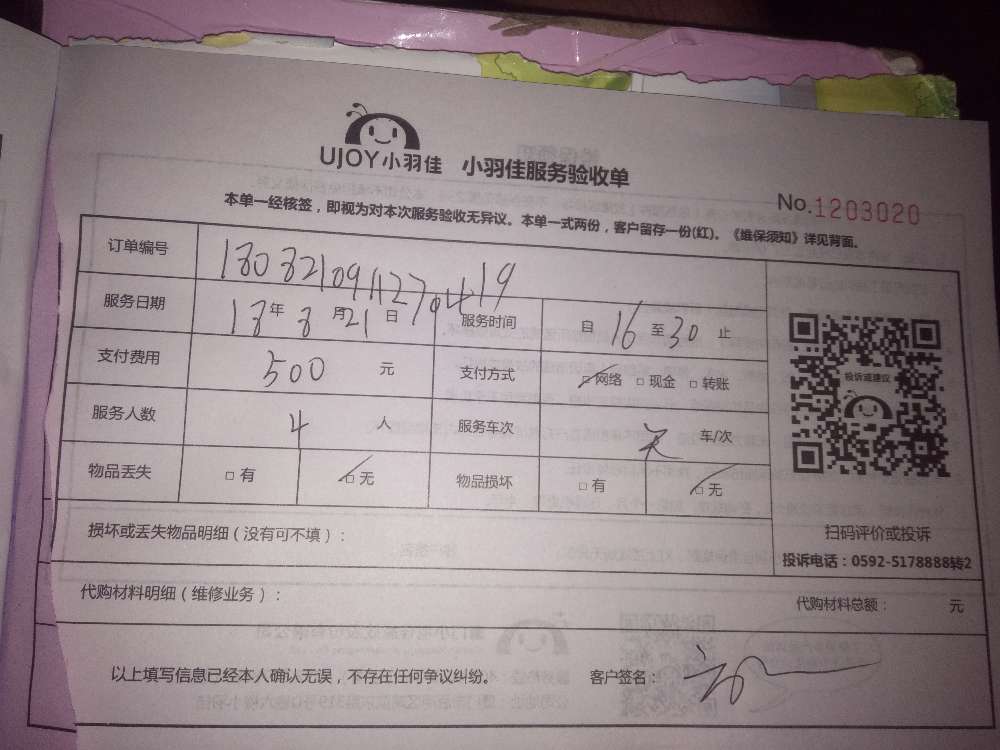 UJOY小羽佳 小羽佳服务验收单
No.1203020
本单一经核签，即视为对本次服务验收无异议。本单一式两份，客户留存一份(红)。《维保须知》详见背面。
订单编号
服务日期 18年8月21日 服务时间 自16至30止
支付费用 500元 支付方式 □网络 □现金 □转账
投诉或建议
服务人数 4人 服务车次 无 车/次
物品丢失 □有 □无 物品损坏 □有 □无
损坏或丢失物品明细（没有可不填）：
扫码评价或投诉
投诉电话：0592-5178888转2
代购材料明细（维修业务）：
代购材料总额： 元
以上填写信息已经本人确认无误，不存在任何争议纠纷。 客户签名：